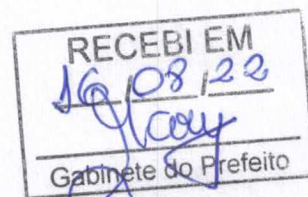 RECEBI EM
16/08/22
Gabinete do Prefeito